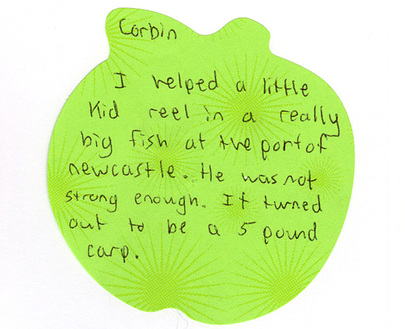 Corbin
I helped a little
Kid reel in a really
big fish at the port of
newcastle. He was not
strong enough. It turned
out to be a 5 pound
carp.